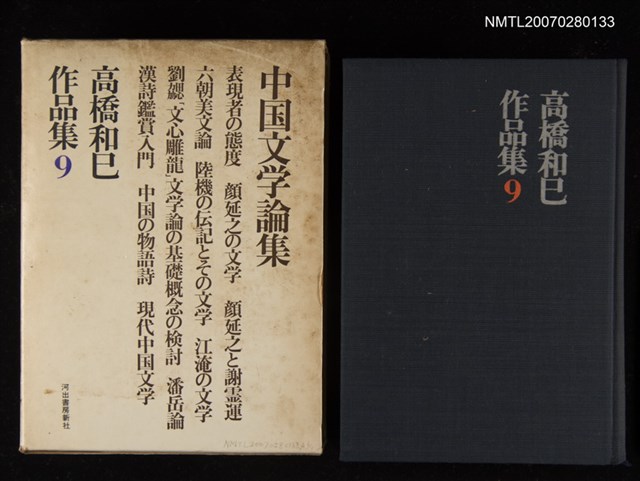 NMTL20070280133
中国文学論集
表現者の態度　顔延之の文学　顔延之と謝霊運
六朝美文論　陸機の伝記とその文学　江淹の文学
劉勰「文心雕龍」文学論の基礎概念の検討　潘岳論
漢詩鑑賞入門　中国の物語詩　現代中国文学
高橋和巳
作品集9
河出書房新社
高橋和巳
作品集9